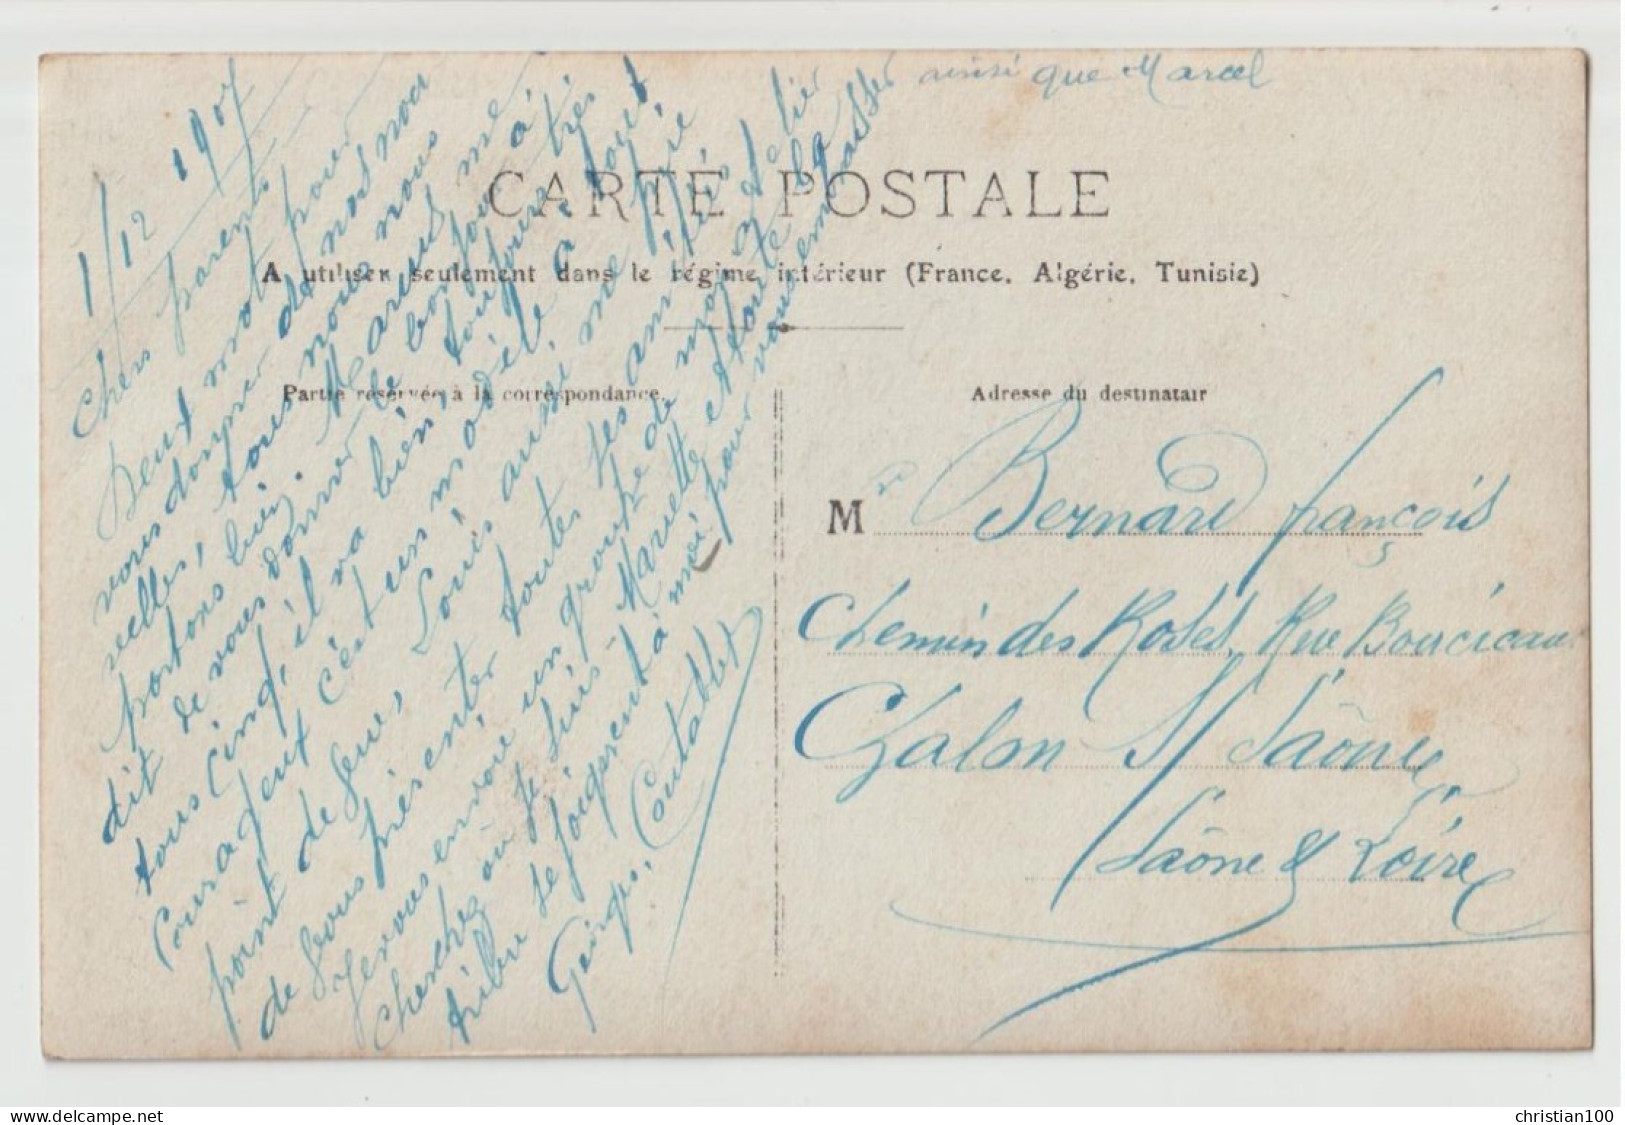 CARTE POSTALE
A utiliser seulement dans le régime intérieur (France, Algérie, Tunisie)
Partie réservée à la correspondance.
Adresse du destinatair
1/12 1907
Chers parents
Deux mots pour
vous donner de nos nou
velles, tous nous nous
portons bien. Marcel me
dit de vous donner le bonjour à
tous cinq, il va bien, toujours très
Courageux c'est un modèle à tout
point de vue, Louis aussi me prie
de vous présenter toutes ses amitiés
Je vous envoie un groupe de mon atelier
Cherchez où je suis - Mariette et toute la
tribu se joignent à moi pour vous embrasser
ainsi que Marcel
Contablet
M Bernard françois
Chemin des Roses, Rue Boucicau
Chalon S/ Saône
Saône & Loire
christian100